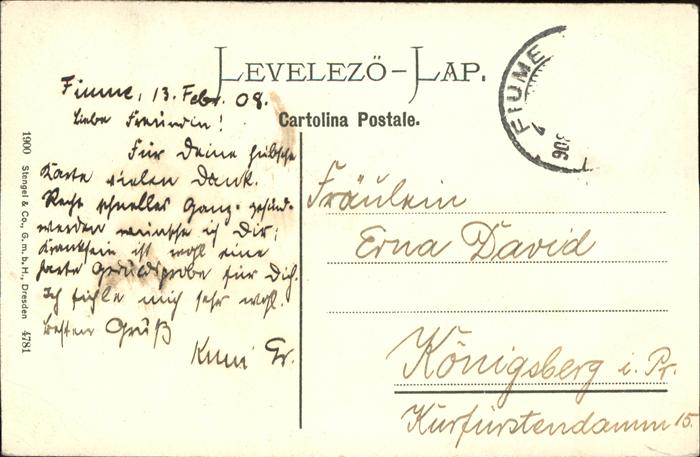 LEVELEZŐ-LAP.
Cartolina Postale.
FIUME
906
Fiume, 13. Febr. 08.
Liebe Freundin!
Für Deine hübsche
Karte vielen Dank.
Recht schnelles Ganz-gesund-
werden wünsche ich Dir;
Kranksein ist wohl eine
harte Geduldsprobe für Dich.
Ich fühle mich sehr wohl.
Besten Gruß
Gr.
Fräulein
Erna David
Königsberg i. Pr.
Kurfürstendamm 15.
1900 Stengel & Co., G. m. b. H., Dresden 4781